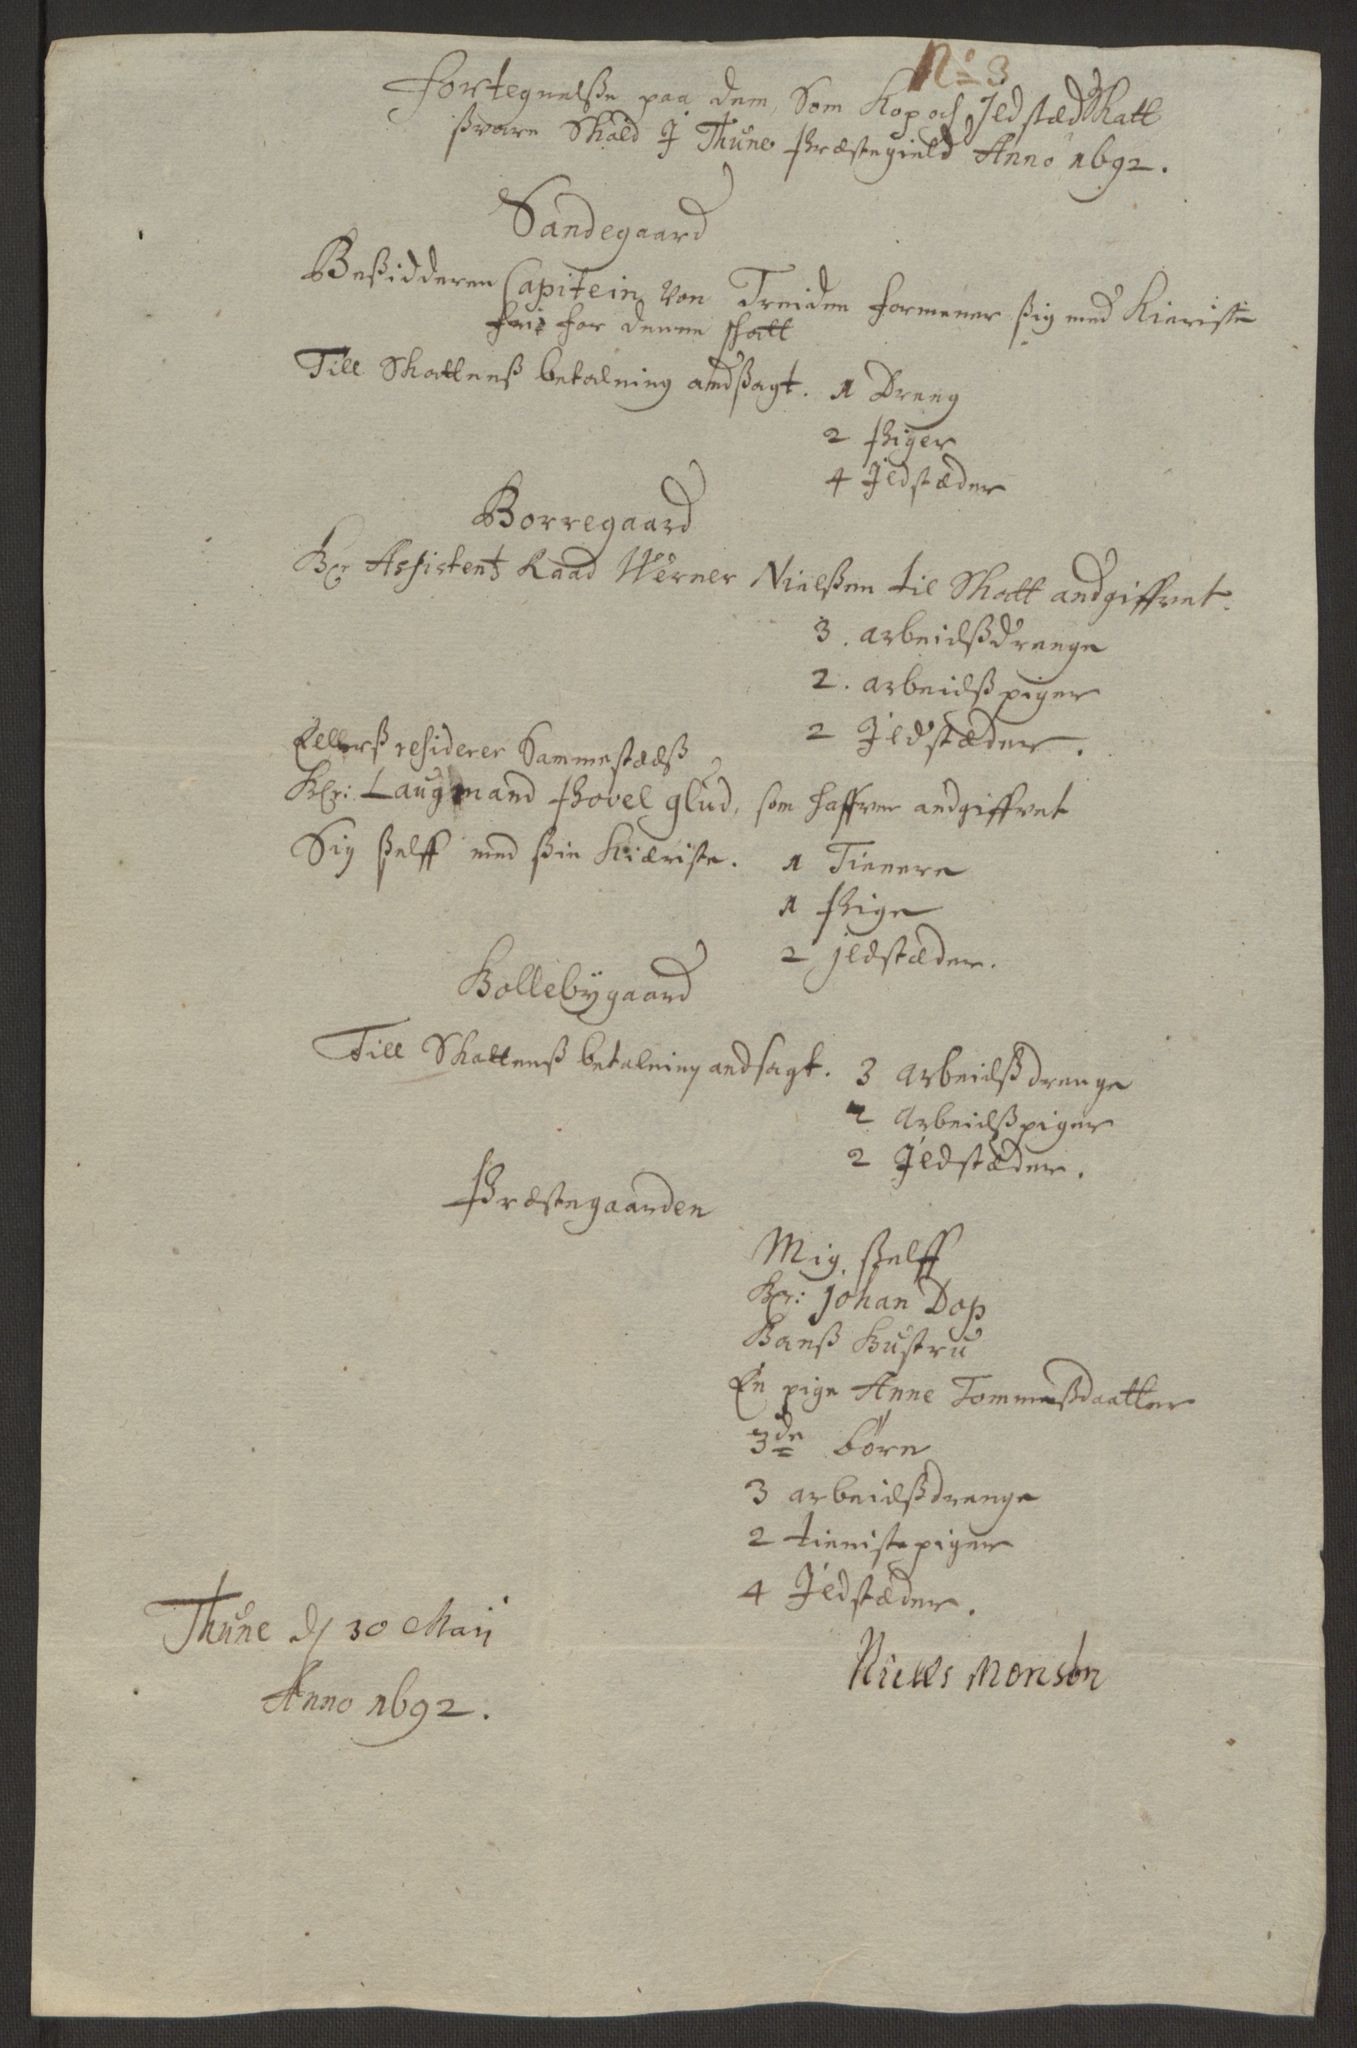 No 3
Fortegnelsse paa dem, Som Kop och Jldstæd Skatt
ssvare Skald J Thune Præstegield Anno 1692.
Sandegaard
Bessidderen Capitein von Treiden formener ssig med Kieriste
frie for denne skatt
Till Skattenss betalning andssagt. 1 Dreng
2 Piger
4 Jldstæder
Borregaard
Hr Assistentz Raad Werner Nielssen til Skatt andgiffvet.
3. arbeidssdrenge
2. arbeidsspiger
2 Jldstæder.
Ellerss residerer Sammestædss
Hr: Laugmand Povel Glud, som haffver andgiffvet
Sig sselff med ssin Kiæriste. 1 Tienere
1 Pige
2 jldstæder.
Hollebygaard
Till Skattenss betalning andsagt. 3 Arbeidssdrenge
2 Arbeidsspiger
2 Jldstæder.
Præstegaarden
Mig sselff
Hr: Johan Dop
Hanss Hustru
En pige Anne Tommessdaatter
3de börn
3 arbeidssdrenge
2 tienistepiger
4 Jldstæder.
Thune d 30 Maij
Anno 1692.
Niells Monsøn